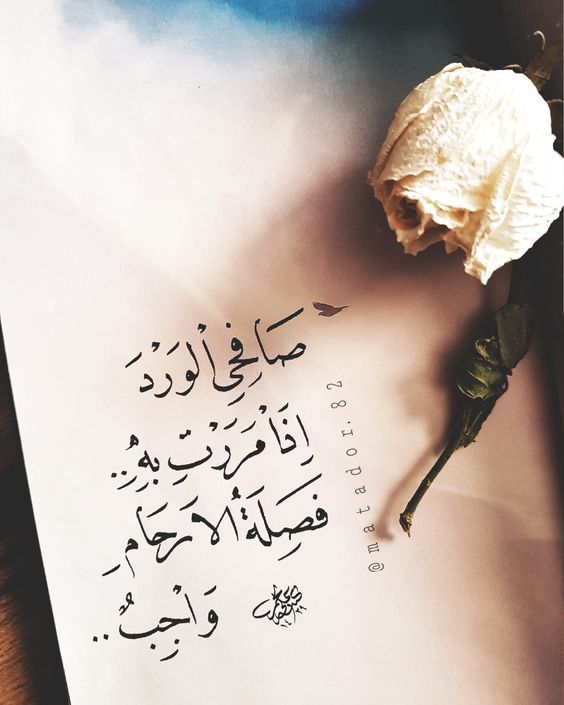 صَافِحِي الْوَرْدَ
اِذَا مَرَرْتِ بِهِ..
فَصِلَةُ الارْحَامِ
وَاْجِبٌ..
@matador.82